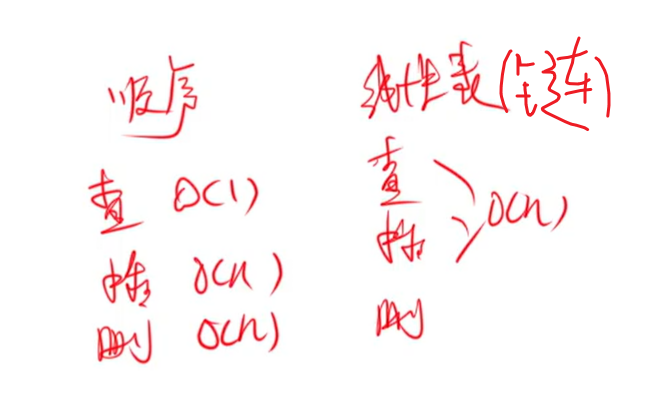 顺序
查 O(1)
插 O(n)
删 O(n)
线性表(链)
查
插 O(n)
删